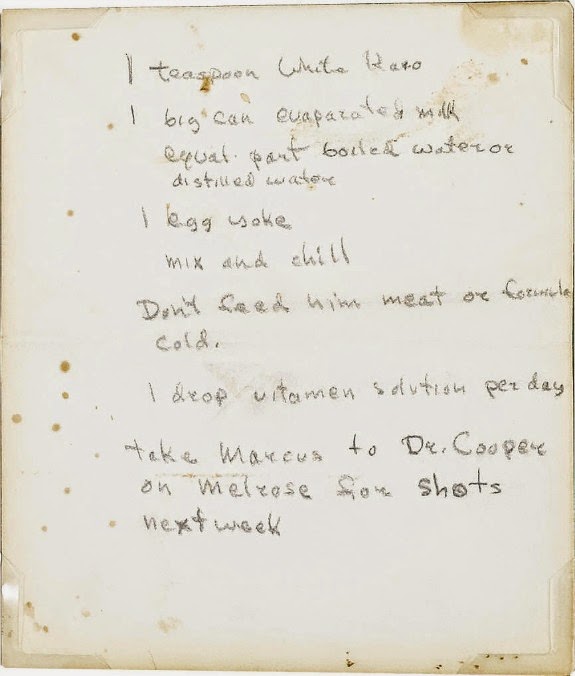 1 teaspoon White Karo
1 big can evaparated milk
equal part boiled water or
distilled water
1 egg yoke
mix and chill
Don't feed him meat or formula
cold.
1 drop vitamen solution per day
take Marcus to Dr. Cooper
on Melrose for shots
next week